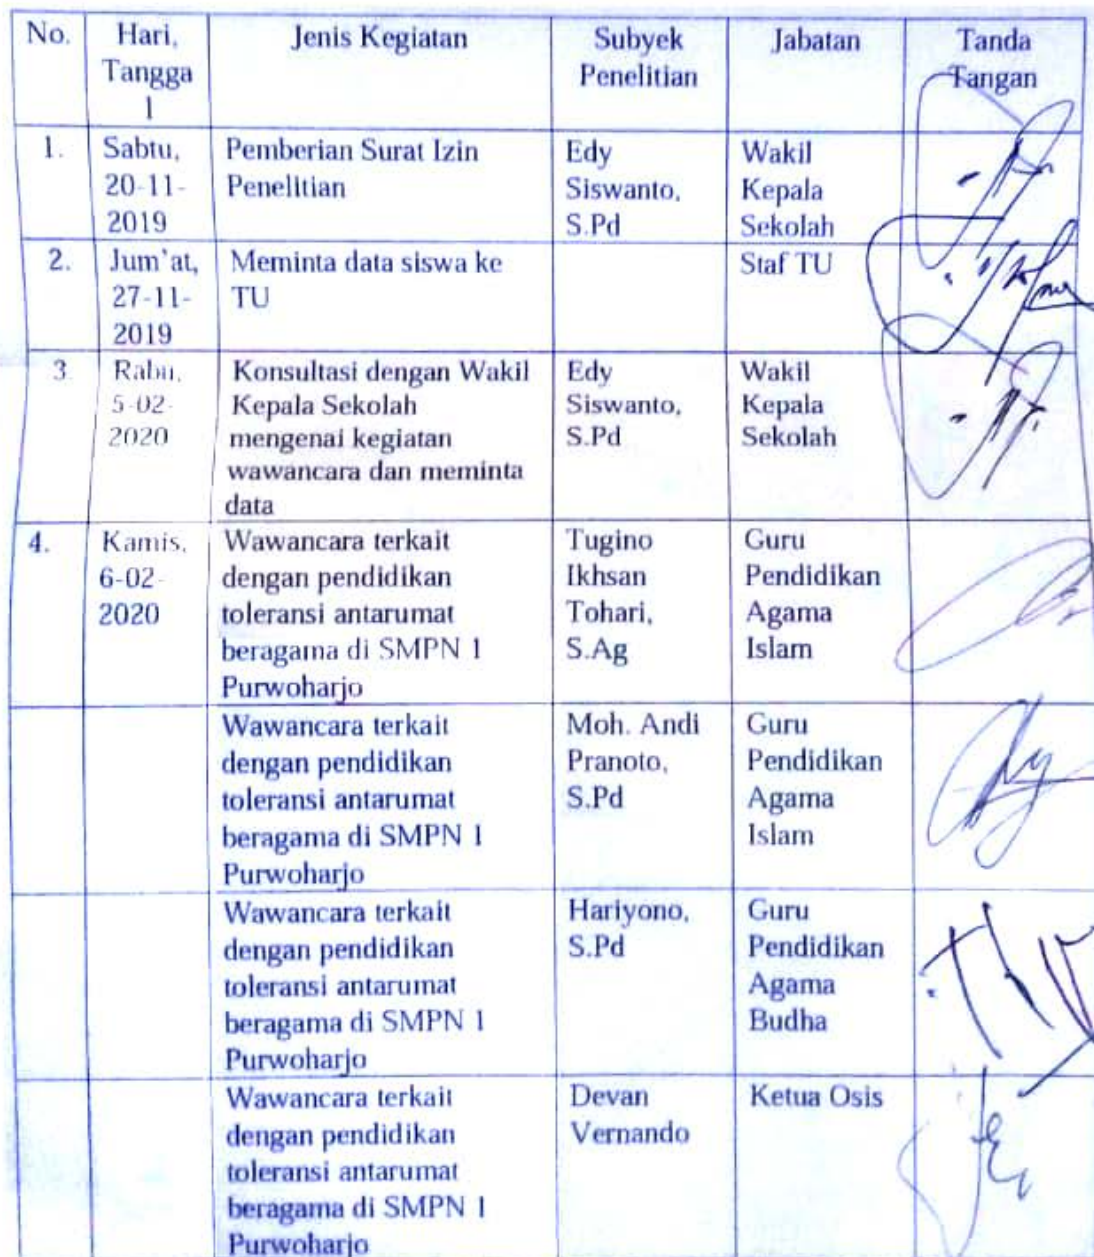 No.
Hari,
Tangga
l
Jenis Kegiatan
Subyek
Penelitian
Jabatan
Tanda
Tangan
1.
Sabtu,
20-11-
2019
Pemberian Surat Izin
Penelitian
Edy
Siswanto,
S.Pd
Wakil
Kepala
Sekolah
2.
Jum'at,
27-11-
2019
Meminta data siswa ke
TU
Staf TU
3.
Rabu,
5-02-
2020
Konsultasi dengan Wakil
Kepala Sekolah
mengenai kegiatan
wawancara dan meminta
data
Edy
Siswanto,
S.Pd
Wakil
Kepala
Sekolah
4.
Kamis,
6-02-
2020
Wawancara terkait
dengan pendidikan
toleransi antarumat
beragama di SMPN 1
Purwoharjo
Tugino
Ikhsan
Tohari,
S.Ag
Guru
Pendidikan
Agama
Islam
Wawancara terkait
dengan pendidikan
toleransi antarumat
beragama di SMPN 1
Purwoharjo
Moh. Andi
Pranoto,
S.Pd
Guru
Pendidikan
Agama
Islam
Wawancara terkait
dengan pendidikan
toleransi antarumat
beragama di SMPN 1
Purwoharjo
Hariyono,
S.Pd
Guru
Pendidikan
Agama
Budha
Wawancara terkait
dengan pendidikan
toleransi antarumat
beragama di SMPN 1
Purwoharjo
Devan
Vernando
Ketua Osis